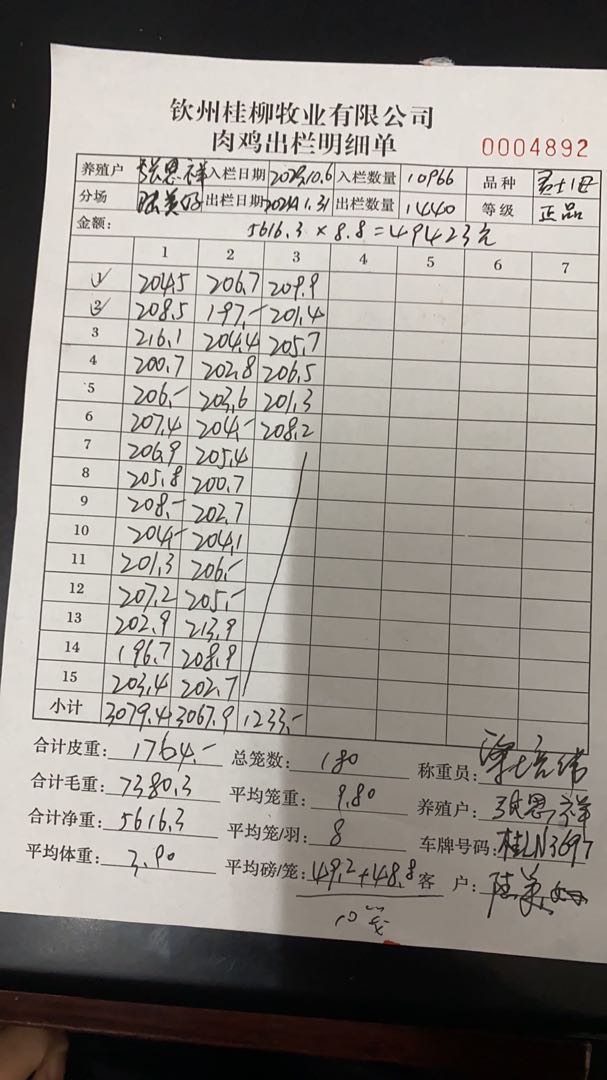 钦州桂柳牧业有限公司
肉鸡出栏明细单
0004892
养殖户 张恩祥 入栏日期 2023.10.6 入栏数量 10966 品种
分场 出栏日期 2024.1.31 出栏数量 1440 等级 正品
金额: 5616.3 × 8.8 = 49423元
1 2 3 4 5 6 7
1 204.5 206.7 209.9
2 208.5 197.- 201.4
3 216.1 204.4 205.7
4 200.7 202.8 206.5
5 206.- 203.6 201.3
6 207.4 204.- 208.2
7 206.9 205.4
8 205.8 200.7
9 208.- 202.7
10 204.- 204.1
11 201.3 206.-
12 207.2 205.-
13 202.9 213.9
14 196.7 208.9
15 203.4 202.7
小计 3079.4 3067.9 1233.-
合计皮重: 1764.- 总笼数: 180 称重员:
合计毛重: 7380.3 平均笼重: 9.80 养殖户: 张恩祥
合计净重: 5616.3 平均笼/羽: 8 车牌号码: 桂LN3697
平均体重: 3.90 平均磅/笼: 49.2+48.8 客户:
10笼